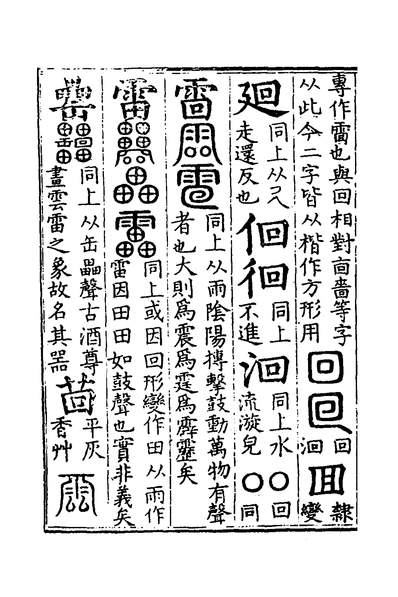 專作雷也與回相對亩嗇等字
从此今二字皆从楷作方形用
回
回
洄
囬
隸
變
廻
同上从又
走還反也
佪徊
同上
不進
洄
同上水
流漩皃
○○
回
同
雷
同上从雨陰陽摶擊鼓動萬物有聲
者也大則爲震爲霆爲霹靂矣
同上或因回形變作田从雨作
雷因田田如鼓聲也實非義矣
同上从缶畾聲古酒尊
畫雲雷之象故名其器
茴
平灰
香艸